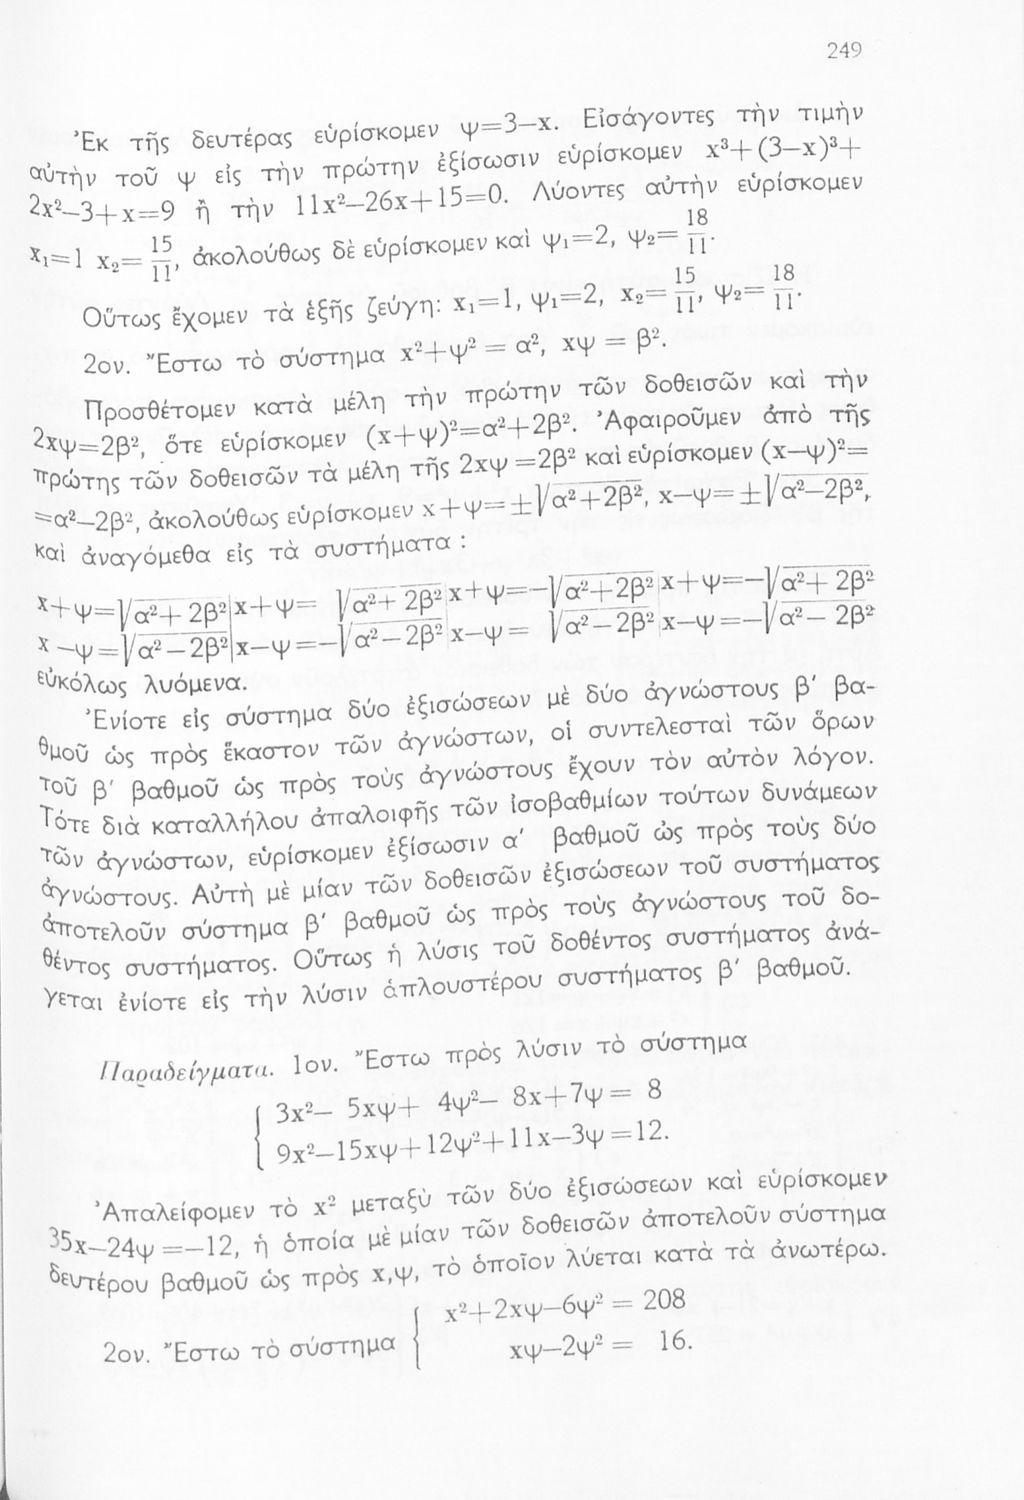 249
Ἐκ τῆς δευτέρας εὑρίσκομεν ψ=3—x. Εἰσάγοντες τὴν τιμὴν
αὐτὴν τοῦ ψ εἰς τὴν πρώτην ἐξίσωσιν εὑρίσκομεν x³+(3—x)³+
2x²—3+x=9 ἢ τὴν 11x²—26x+15=0. Λύοντες αὐτὴν εὑρίσκομεν
x₁=1 x₂= 15/11, ἀκολούθως δὲ εὑρίσκομεν καὶ ψ₁=2, ψ₂= 18/11.
Οὕτως ἔχομεν τὰ ἑξῆς ζεύγη: x₁=1, ψ₁=2, x₂= 15/11, ψ₂= 18/11.
2ον. Ἔστω τὸ σύστημα x²+ψ² = α², xψ = β².
Προσθέτομεν κατὰ μέλη τὴν πρώτην τῶν δοθεισῶν καὶ τὴν
2xψ=2β², ὅτε εὑρίσκομεν (x+ψ)²=α²+2β². Ἀφαιροῦμεν ἀπὸ τῆς
πρώτης τῶν δοθεισῶν τὰ μέλη τῆς 2xψ =2β² καὶ εὑρίσκομεν (x—ψ)²=
=α²—2β², ἀκολούθως εὑρίσκομεν x+ψ=±√α²+2β², x—ψ=±√α²—2β²,
καὶ ἀναγόμεθα εἰς τὰ συστήματα :
x+ψ=√α²+ 2β²|x+ψ= √α²+ 2β²|x+ψ=—√α²+2β²|x+ψ=—√α²+ 2β²
x —ψ=√α²—2β²|x—ψ=—√α²—2β²|x—ψ= √α²—2β²|x—ψ=—√α²— 2β²
εὐκόλως λυόμενα.
Ἐνίοτε εἰς σύστημα δύο ἐξισώσεων μὲ δύο ἀγνώστους β΄ βα-
θμοῦ ὡς πρὸς ἕκαστον τῶν ἀγνώστων, οἱ συντελεσταὶ τῶν ὅρων
τοῦ β΄ βαθμοῦ ὡς πρὸς τοὺς ἀγνώστους ἔχουν τὸν αὐτὸν λόγον.
Τότε διὰ καταλλήλου ἀπαλοιφῆς τῶν ἰσοβαθμίων τούτων δυνάμεων
τῶν ἀγνώστων, εὑρίσκομεν ἐξίσωσιν α΄ βαθμοῦ ὡς πρὸς τοὺς δύο
ἀγνώστους. Αὐτὴ μὲ μίαν τῶν δοθεισῶν ἐξισώσεων τοῦ συστήματος
ἀποτελοῦν σύστημα β΄ βαθμοῦ ὡς πρὸς τοὺς ἀγνώστους τοῦ δο-
θέντος συστήματος. Οὕτως ἡ λύσις τοῦ δοθέντος συστήματος ἀνά-
γεται ἐνίοτε εἰς τὴν λύσιν ἁπλουστέρου συστήματος β΄ βαθμοῦ.
Παραδείγματα. 1ον. Ἔστω πρὸς λύσιν τὸ σύστημα
3x²— 5xψ+ 4ψ²— 8x+7ψ = 8
9x²—15xψ+12ψ²+11x—3ψ =12.
Ἀπαλείφομεν τὸ x² μεταξὺ τῶν δύο ἐξισώσεων καὶ εὑρίσκομεν
35x—24ψ =—12, ἡ ὁποία μὲ μίαν τῶν δοθεισῶν ἀποτελοῦν σύστημα
δευτέρου βαθμοῦ ὡς πρὸς x,ψ, τὸ ὁποῖον λύεται κατὰ τὰ ἀνωτέρω.
x²+2xψ—6ψ² = 208
2ον. Ἔστω τὸ σύστημα
xψ—2ψ² = 16.